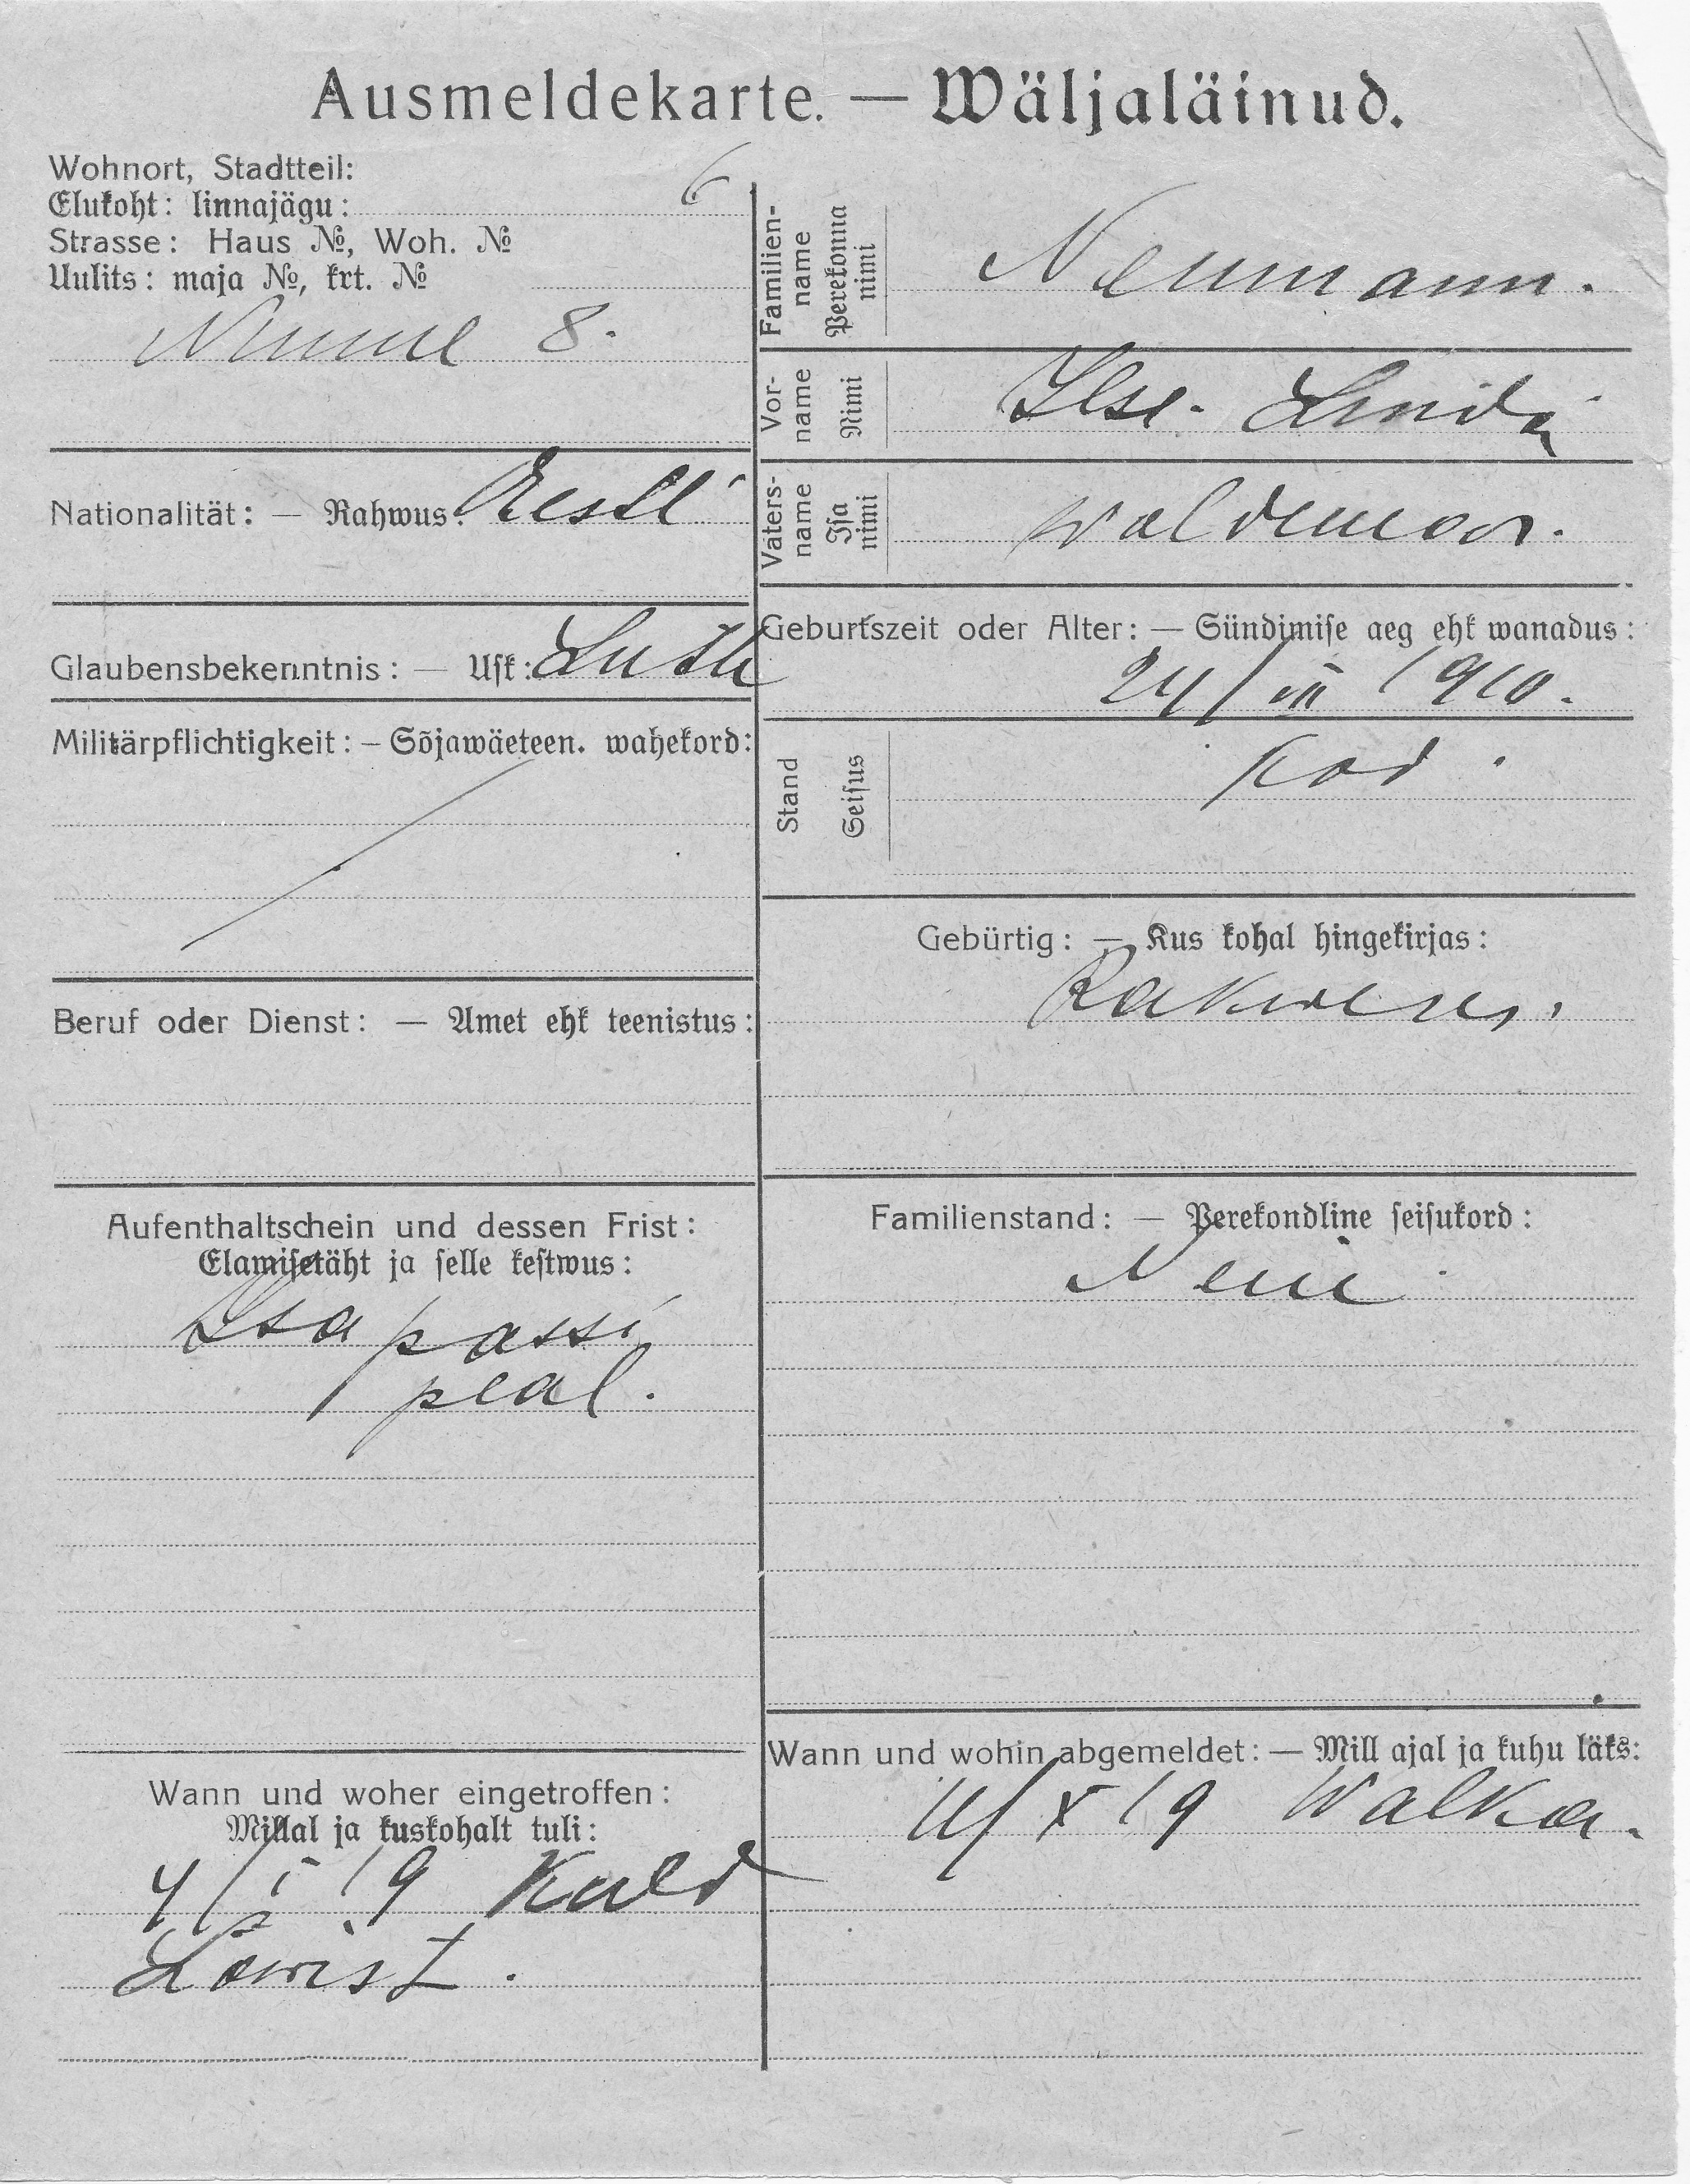 Ausmeldekarte. — Wäljaläinud.
Wohnort, Stadtteil:
Elukoht: linnajägu: 6
Strasse: Haus №, Woh. №
Uulits: maja №, krt. №
8.
Nationalität: — Rahwus: Eesti
Glaubensbekenntnis: — Usk: Luth
Militärpflichtigkeit: – Sõjawäeteen. wahekord:
Beruf oder Dienst: — Amet ehk teenistus:
Aufenthaltschein und dessen Frist:
Elamisetäht ja selle kestwus:
Isa passi
peal.
Wann und woher eingetroffen:
Millal ja kuskohalt tuli:
4/I 19
Familien-
name
Perekonna
nimi
Neumann.
Vor-
name
Nimi
Ilse-Linda
Vaters-
name
Isa
nimi
Woldemar.
Geburtszeit oder Alter: — Sündimise aeg ehk wanadus:
24/VII 1910.
Stand
Seisus
Kod.
Gebürtig: — Kus kohal hingekirjas:
Rakweres.
Familienstand: — Perekondline seisukord:
Wann und wohin abgemeldet: — Mill ajal ja kuhu läks:
X 19 Walka.